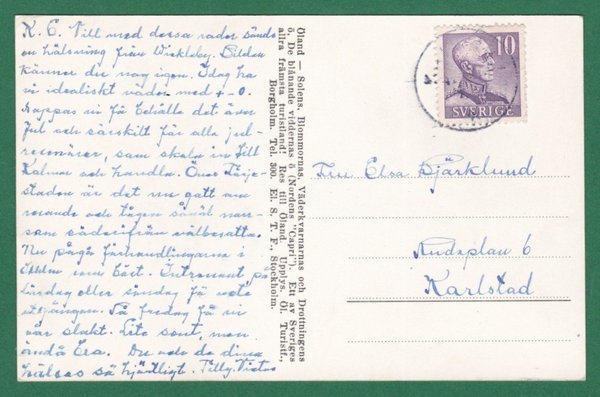 K. E. Vill med dessa rader sända
en hälsning från Vickleby. Bilden
känner du nog igen. Idag ha
vi idealiskt väder med + - 0.
Hoppas vi få behålla det över
Jul och särskilt för alla jul-
resenärer, som skola in till
Kalmar och handla. Över Färje-
staden är det nu gott om
och tågen såväl norr-
som söderifrån välbesatta.
Nu pågå förhandlingarna i
som bäst.
lördag eller söndag få veta
utgången. På fredag få vi
vår slakt. Lite sent, men
ändå bra. Du och de dina
hälsas så hjärtligt. Tilly. Victor
Öland — Solens, Blommornas, Väderkvarnarnas och Drottningens
ö. De blånande viddernas ö (Nordens "Capri"). Ett av Sveriges
allra främsta turistland: Res till Öland. Upplys. Öl. Turistf.,
Borgholm. Tel. 300. El. S. T. F., Stockholm.
10
SVERIGE
Fru Elsa Bjärklund
Rudsplan 6
Karlstad